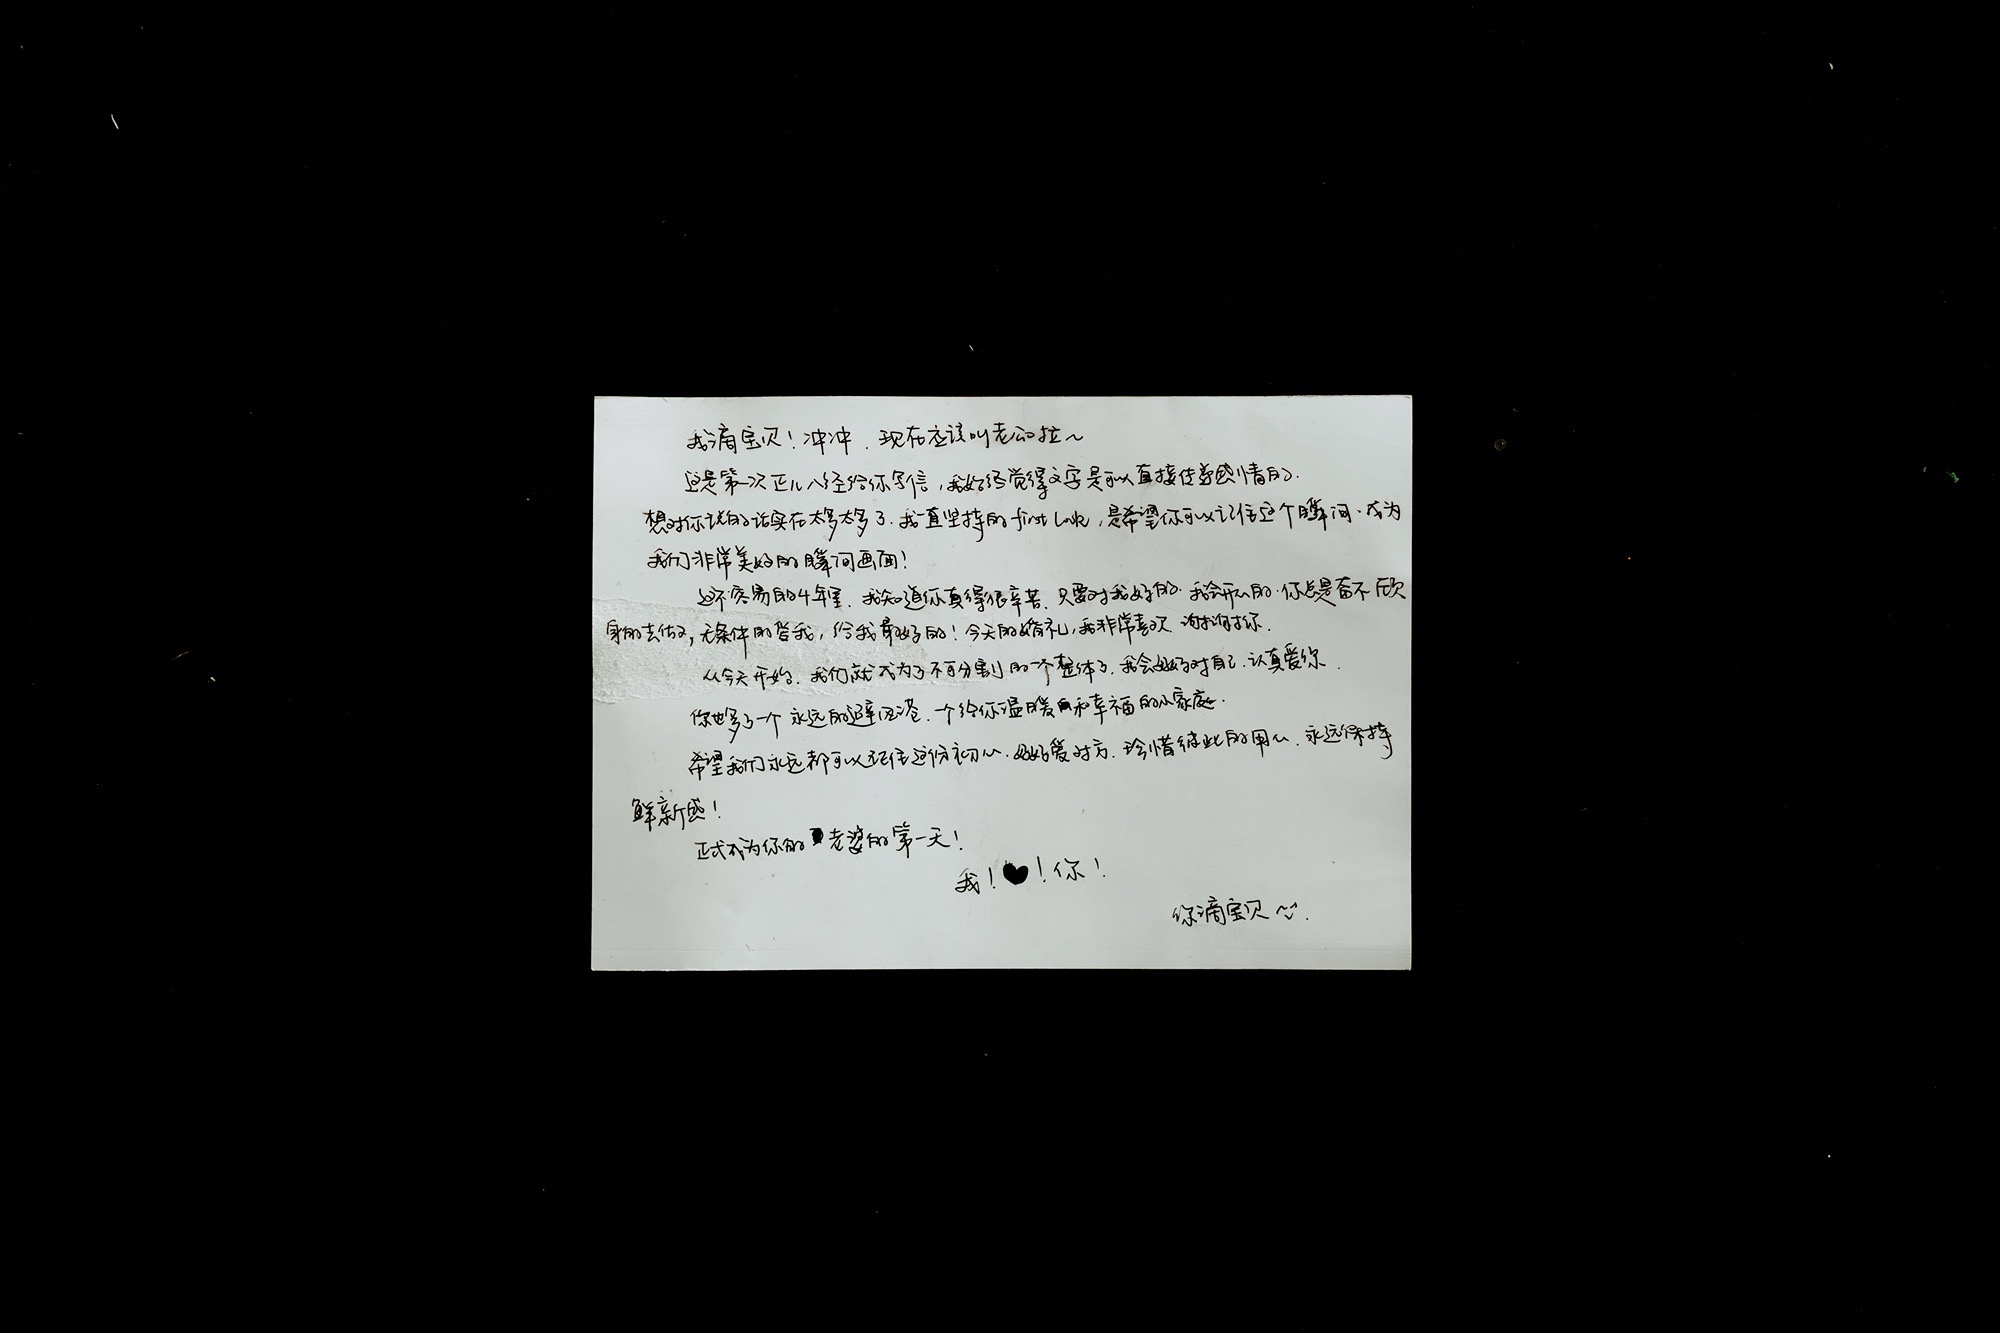 我滴宝贝！冲冲．现在应该叫老公拉～
这是第一次正儿八经给你写信，我始终觉得文字是可以直接传劳感情的．
想对你说的话实在太多太多了．我一直坚持的 first look，是希望你可以记住这个瞬间．成为
我们非常美好的瞬间画面！
这不容易的4年里．我知道你真得很辛苦．只要对我好的．我会开心的．你总是奋不顾
身的去做，无条件的答我，给我最好的！今天的婚礼，我非常喜欢 谢谢你．
从今天开始．我们就成为了不可分割的一个整体了．我会好好对自己．认真爱你．
你也多了一个永远的避风港．一个给你温暖和幸福的小家庭．
希望我们永远都可以记住这份初心．好好爱对方．珍惜彼此的用心．永远保持
鲜新感！
正式成为你的老婆的第一天！
我！♥！你！
你滴宝贝～